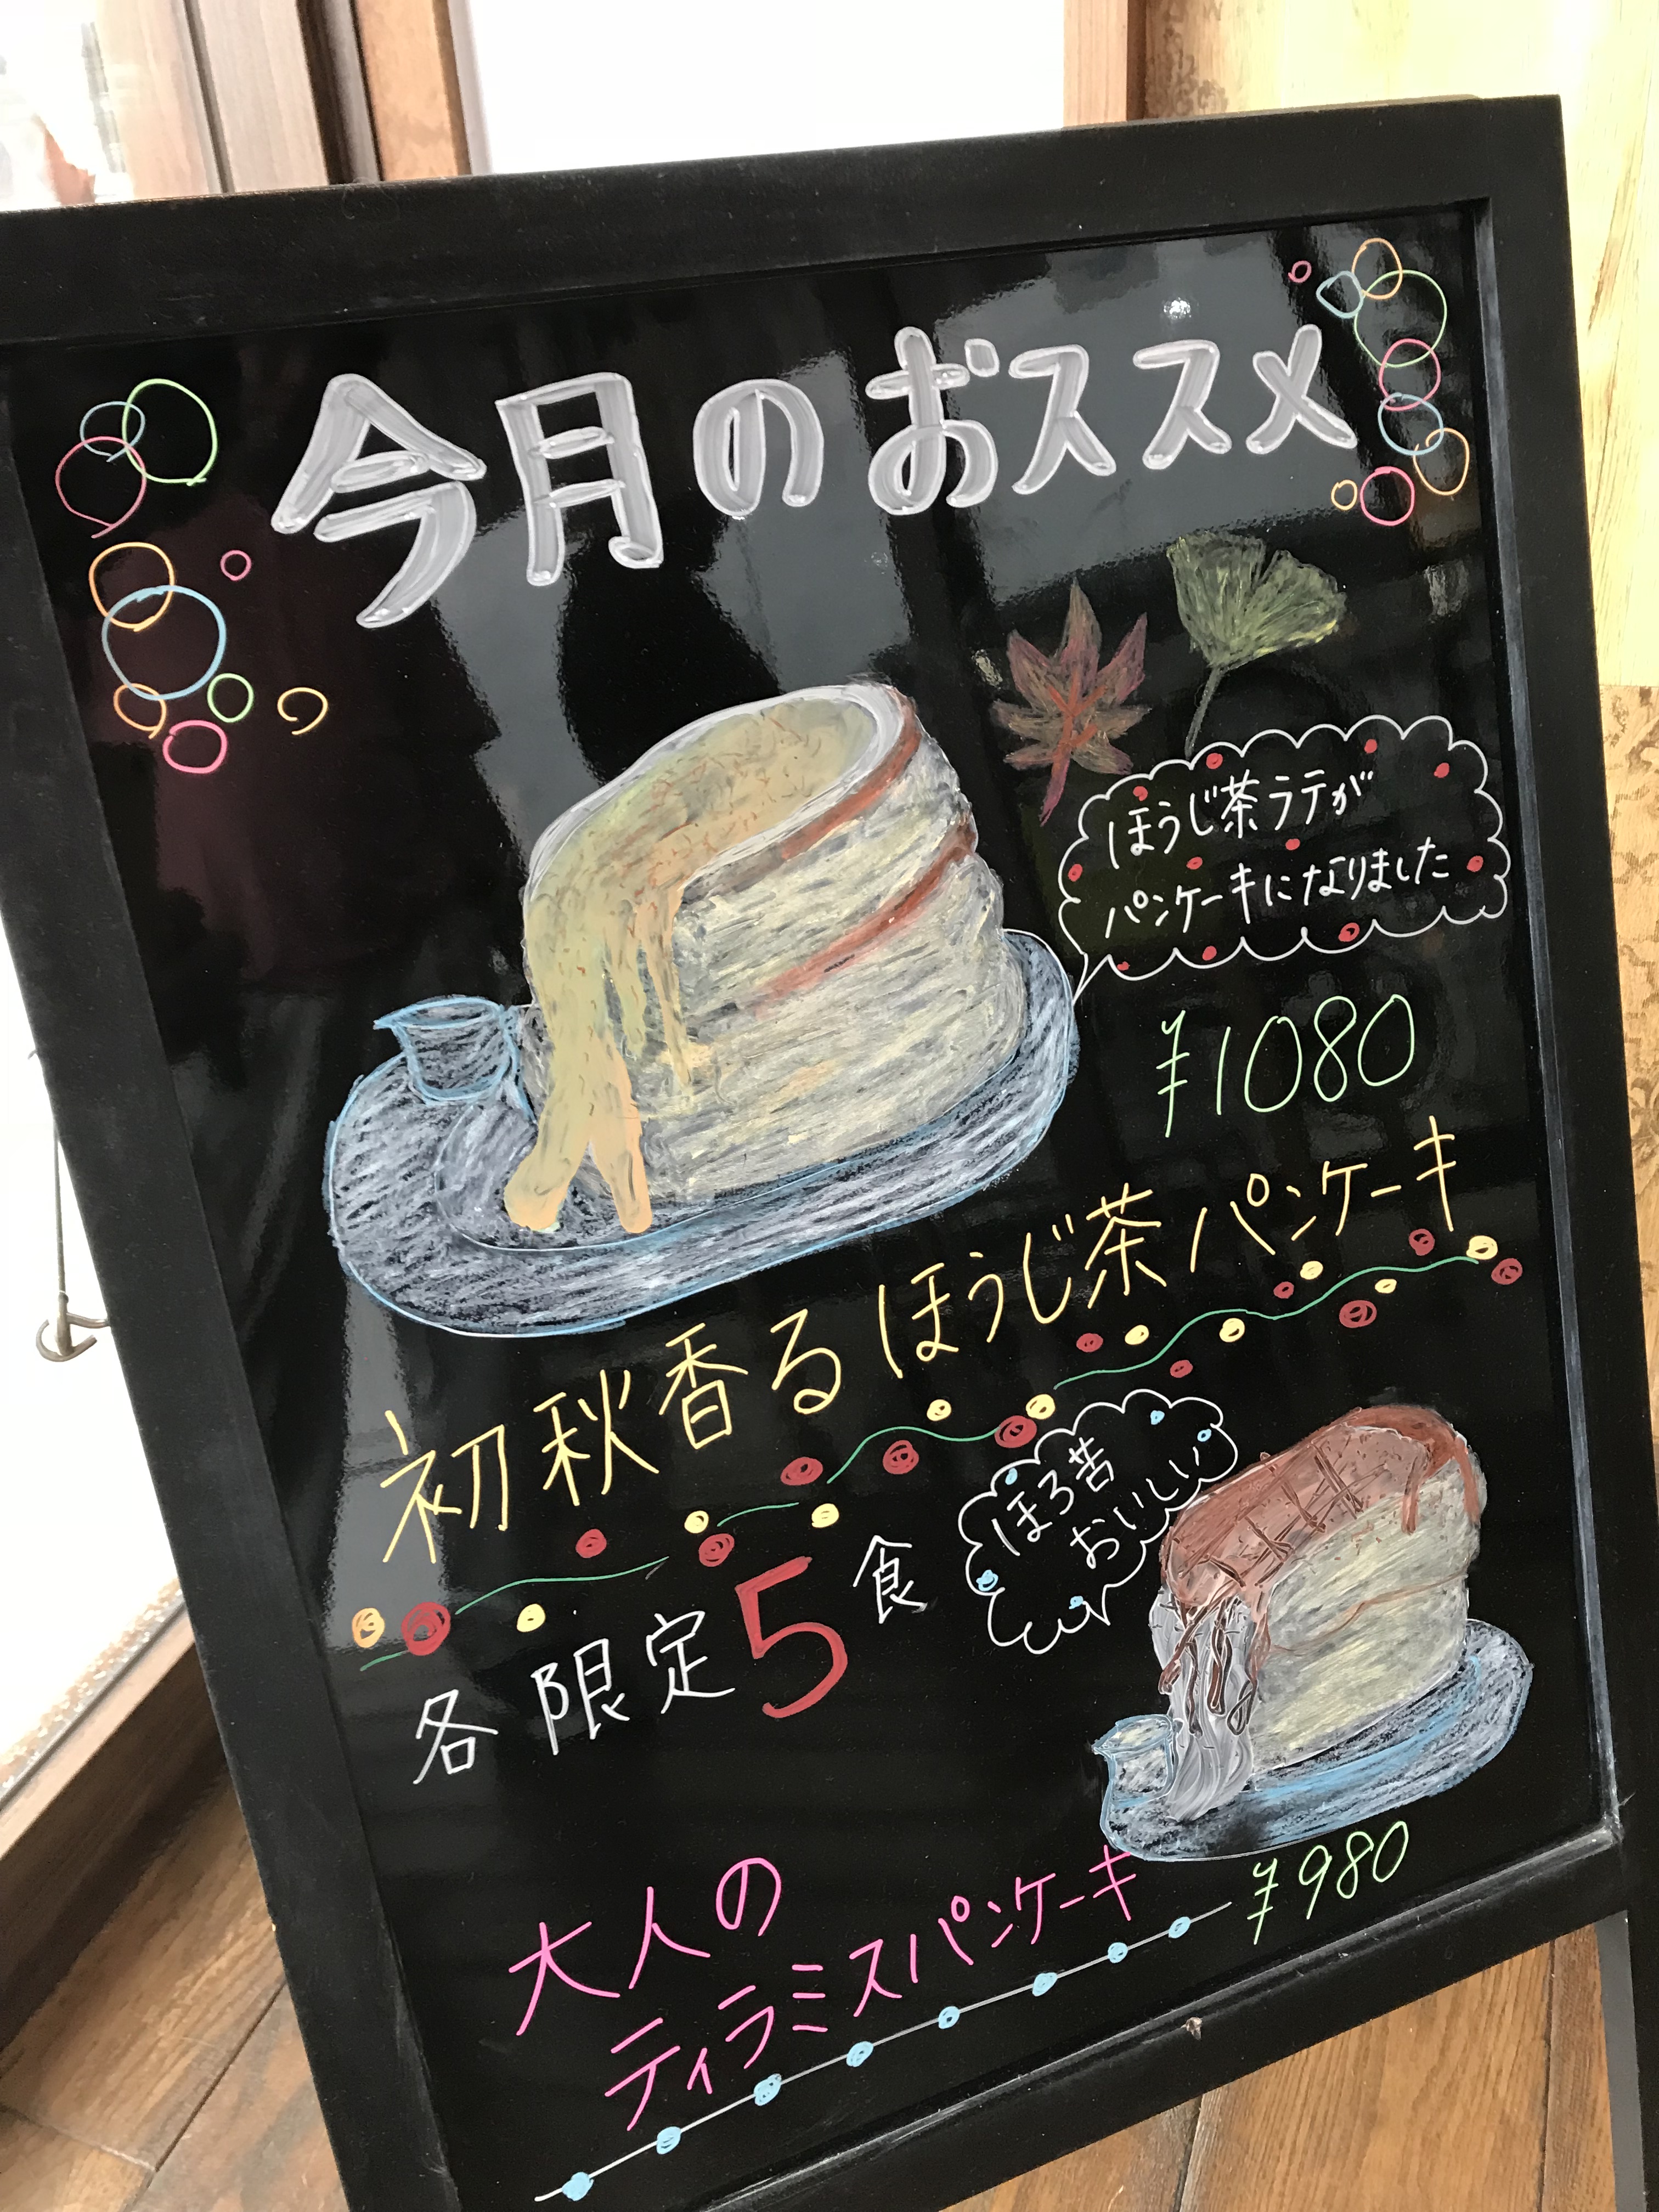 今月のおススメ
ほうじ茶ラテが
パンケーキになりました
¥1080
初秋香るほうじ茶パンケーキ
各限定5食
ほろ苦
おいしい
大人の
ティラミスパンケーキ
¥980